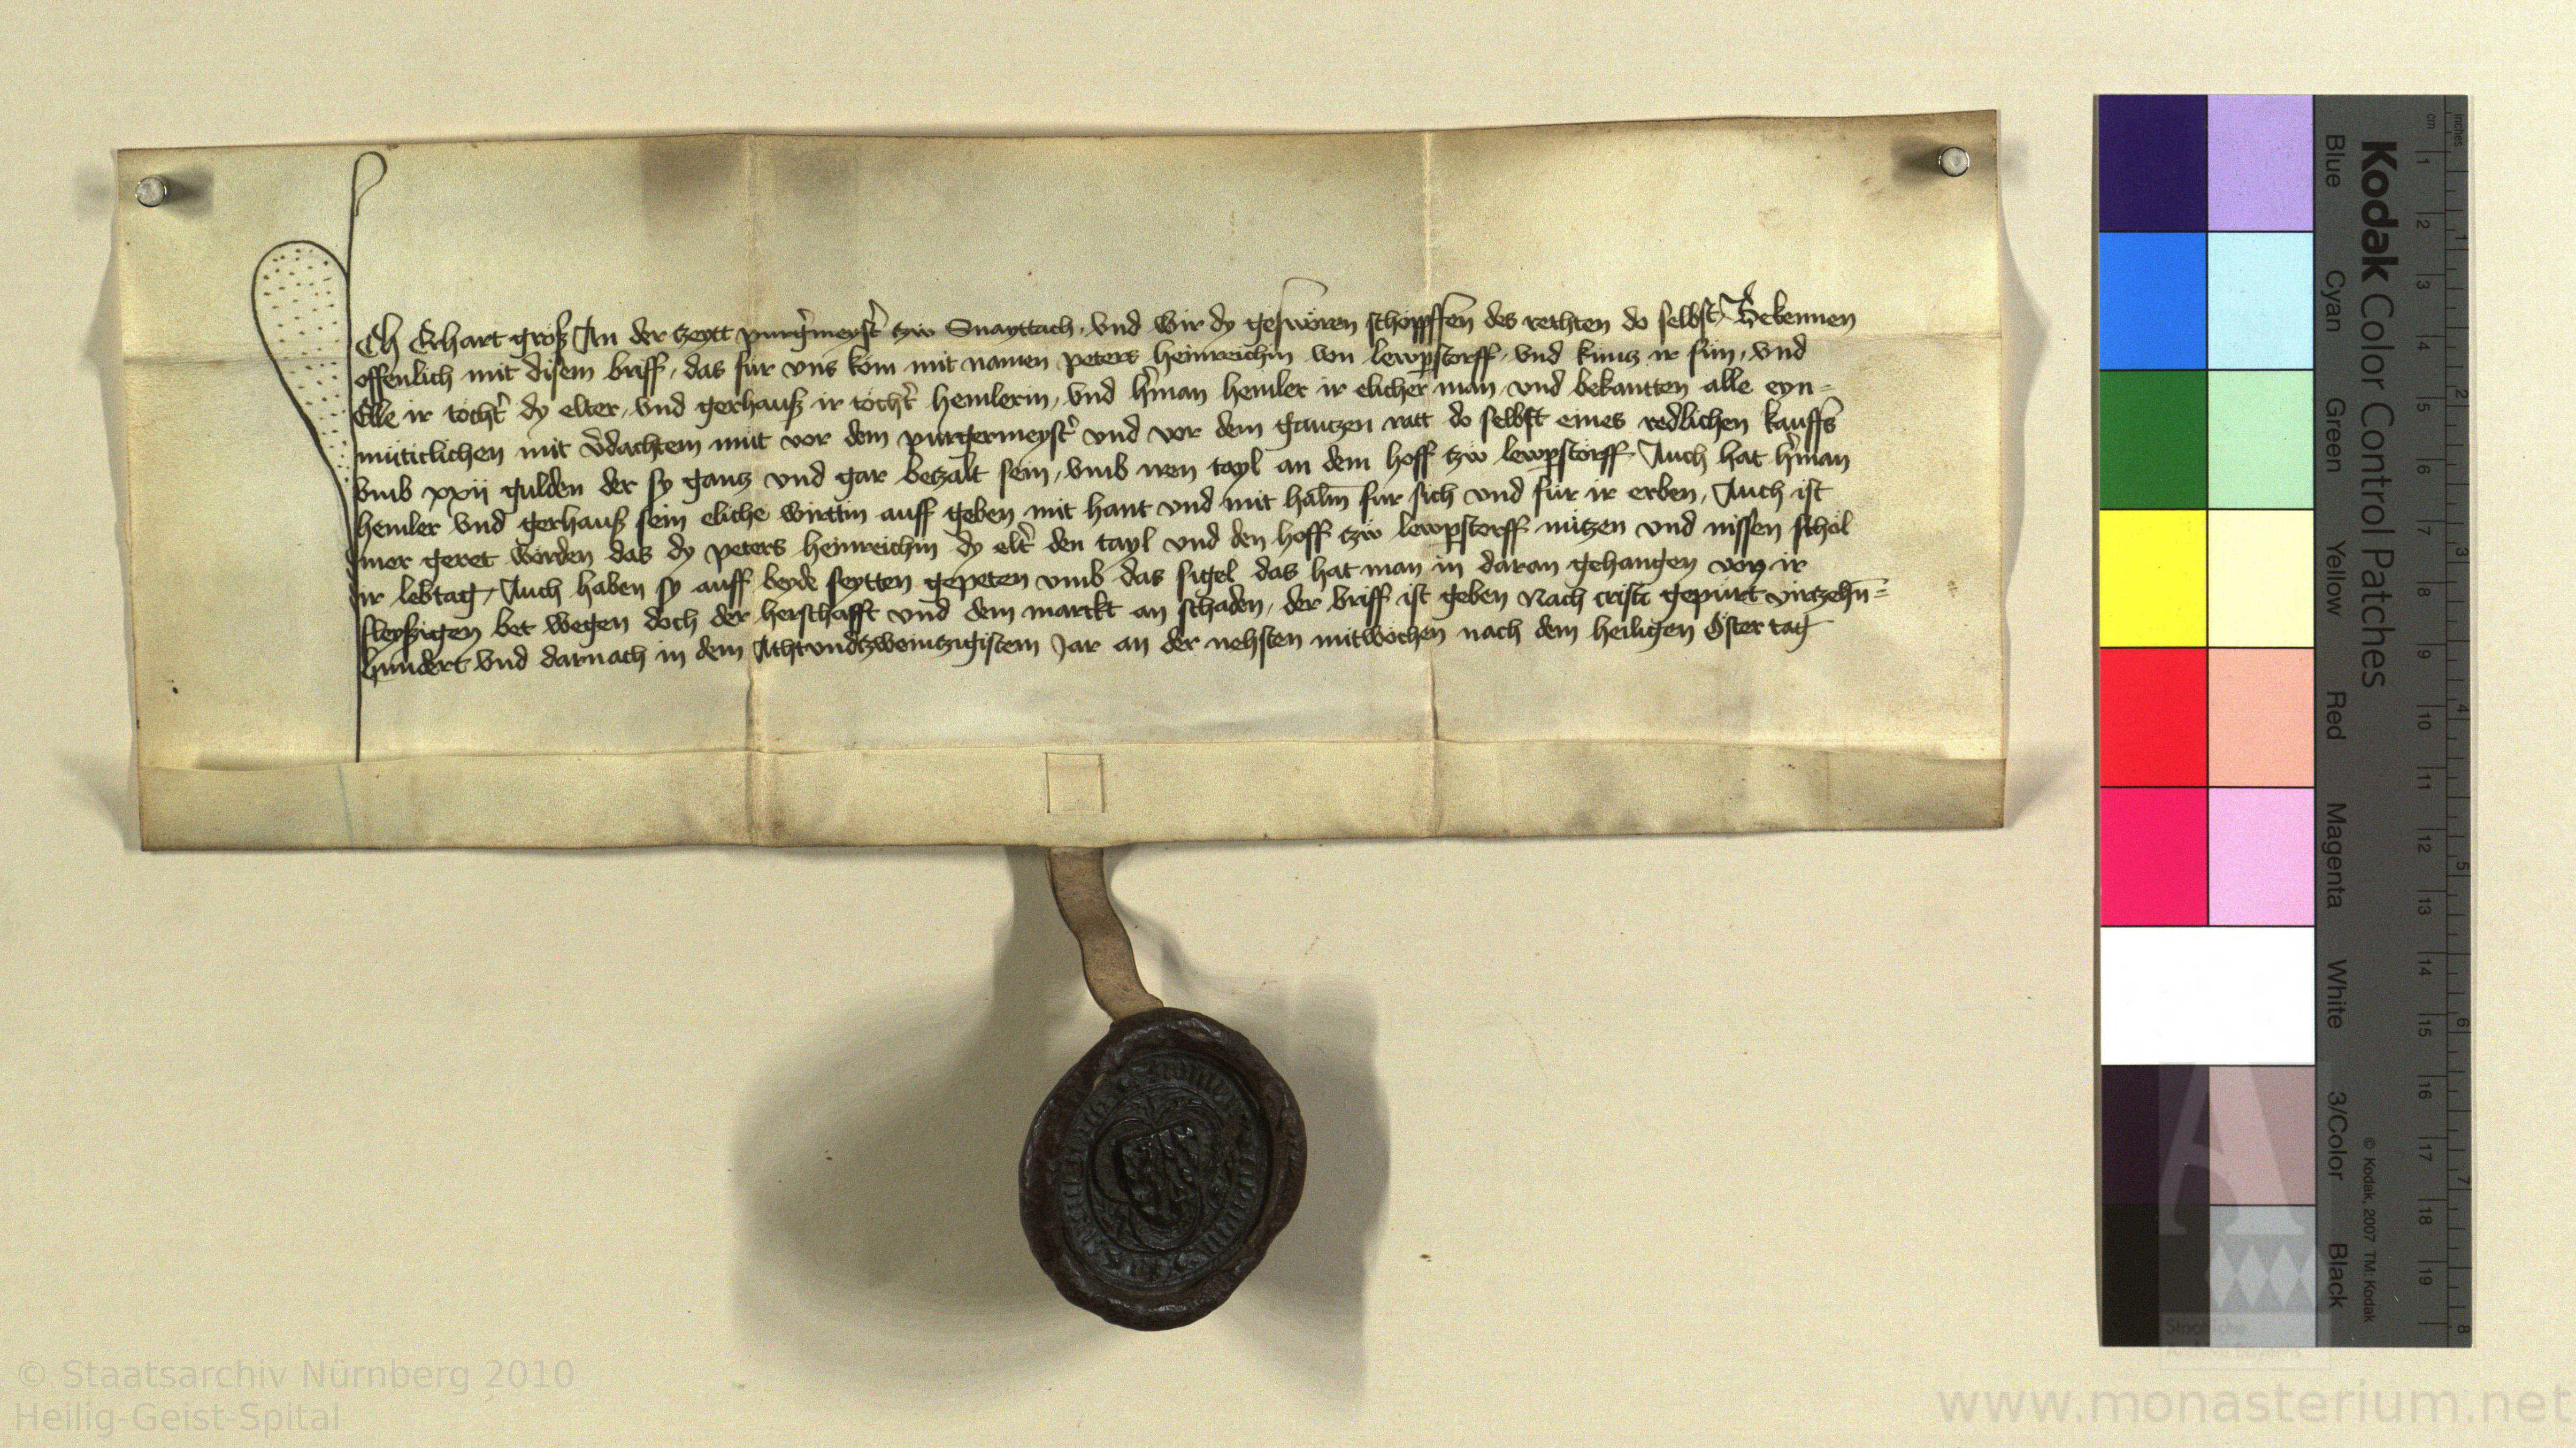 Ich Erhart groß An der tzeytt purg̃meyst̃ tzw Snayttach, vnd wir dy gesworen schöppffen des rechten do selbst, Bekennen
offenlich mit disem briff, das für vns kom mit namen peters heinreichin von lewpstorff, vnd kuntz ir sun, vnd
Elle ir tocht̃ dy elter, vnd gerhauß ir tocht̃ hemlerin, vnd h̃man hemler ir elicher man, vnd bekantten alle eyn=
müticlichen mit ṽdachtem mut vor dem purgermeyst̃ vnd vor dem gantzen ratt do selbst eines redlichen kauffs
vmb xxij gulden der sy gantz vnd gar betzalt sein, vmb iren tayl an dem hoff tzw lewpstorff Auch hat h̃man
hemler vnd gerhauß sein eliche wirttin auff geben mit hant vnd mit halm̅ für sich vnd für ir erben, Auch ist
mer geret worden das dy peters heinreichin dy elt̃ den tayl vnd den hoff tzw lewpstorff nützen vnd nissen schol
ir lebtag, Auch haben sy auff beyde seytten gepeten vmb das sigel das hat man in daran gehangen von ir
fleyßigen bet wegen doch der herschafft vnd dem marckt an schaden, der briff ist geben Nach cristi gepurt virtzehn̅=
hundert vnd darnach in dem Achtvndtzweintzigistem Jar an der nehsten mitwochen nach dem heiligen Öster tag
Kodak Color Control Patches
Blue Cyan Green Yellow Red Magenta White 3/Color Black
© Kodak, 2007 TM: Kodak
inches 1 2 3 4 5 6 7 8
cm 1 2 3 4 5 6 7 8 9 10 11 12 13 14 15 16 17 18 19
© Staatsarchiv Nürnberg 2010
Heilig-Geist-Spital
www.monasterium.net